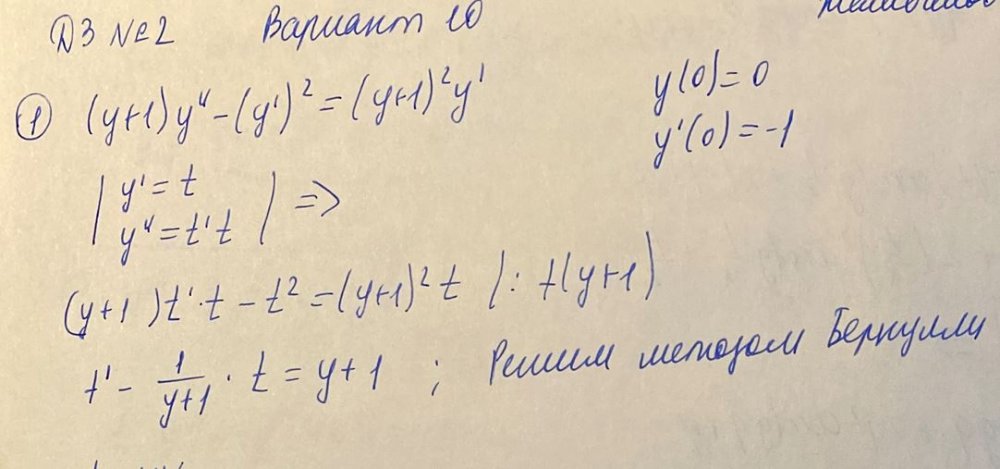 ДЗ №2 Вариант 10
① (y+1)y'' - (y')² = (y+1)²y' y(0) = 0
y'(0) = -1
| y' = t
y'' = t't | =>
(y+1)t'·t - t² = (y+1)² t |: t(y+1)
t' - 1/(y+1) · t = y+1 ; Решим методом Бернулли